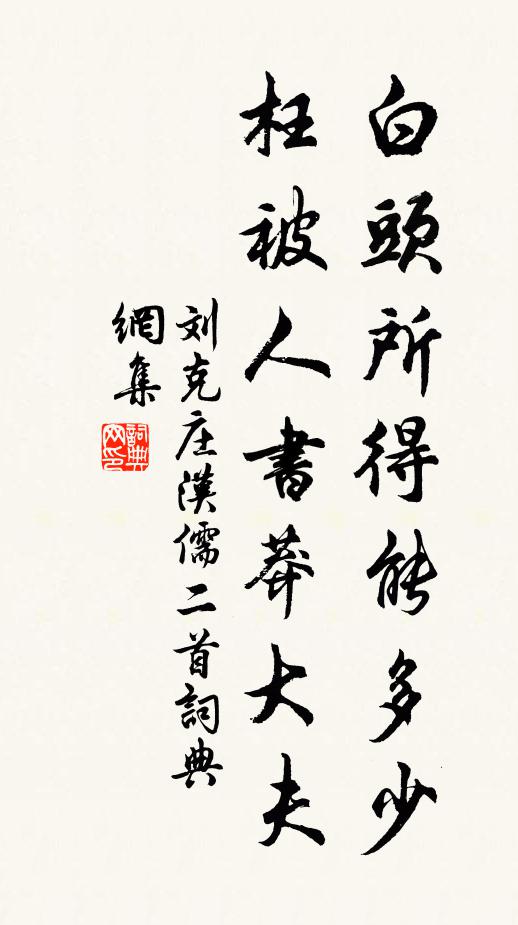 白頭所得能多少
枉被人書莽大夫
刘克庄漢儒二首詞典
網集
詞典
网印